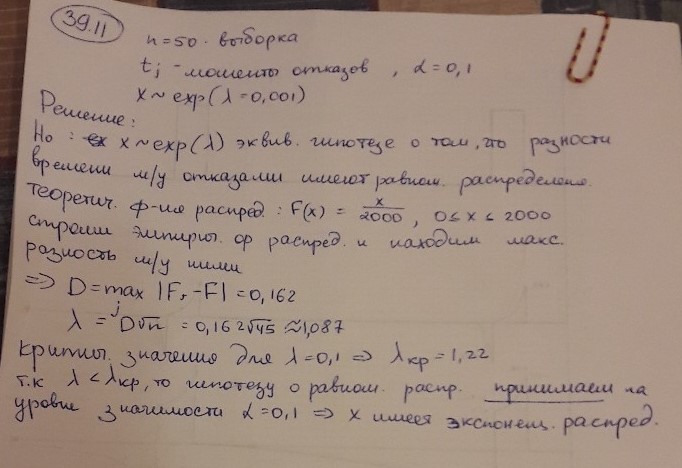 39.11
n=50. выборка
tj - моменты отказов, α=0,1
x ~ exp(λ=0,001)
Решение:
H0: x ~ exp(λ) эквив. гипотезе о том, что разности
времени м/у отказами имеют равном. распределение.
Теоретич. ф-ия распред.: F(x) = x/2000, 0≤x≤2000
строим эмпирич. ф распред. и находим макс.
разность м/у ними
=> D = max |Fr - F| = 0,162
j
λ = D√n = 0,162√45 ≈ 1,087
критич. значения для λ=0,1 => λкр = 1,22
т.к λ < λкр, то гипотезу о равном. распр. принимаем на
уровне значимости α=0,1 => x имеет экспоненц. распред.